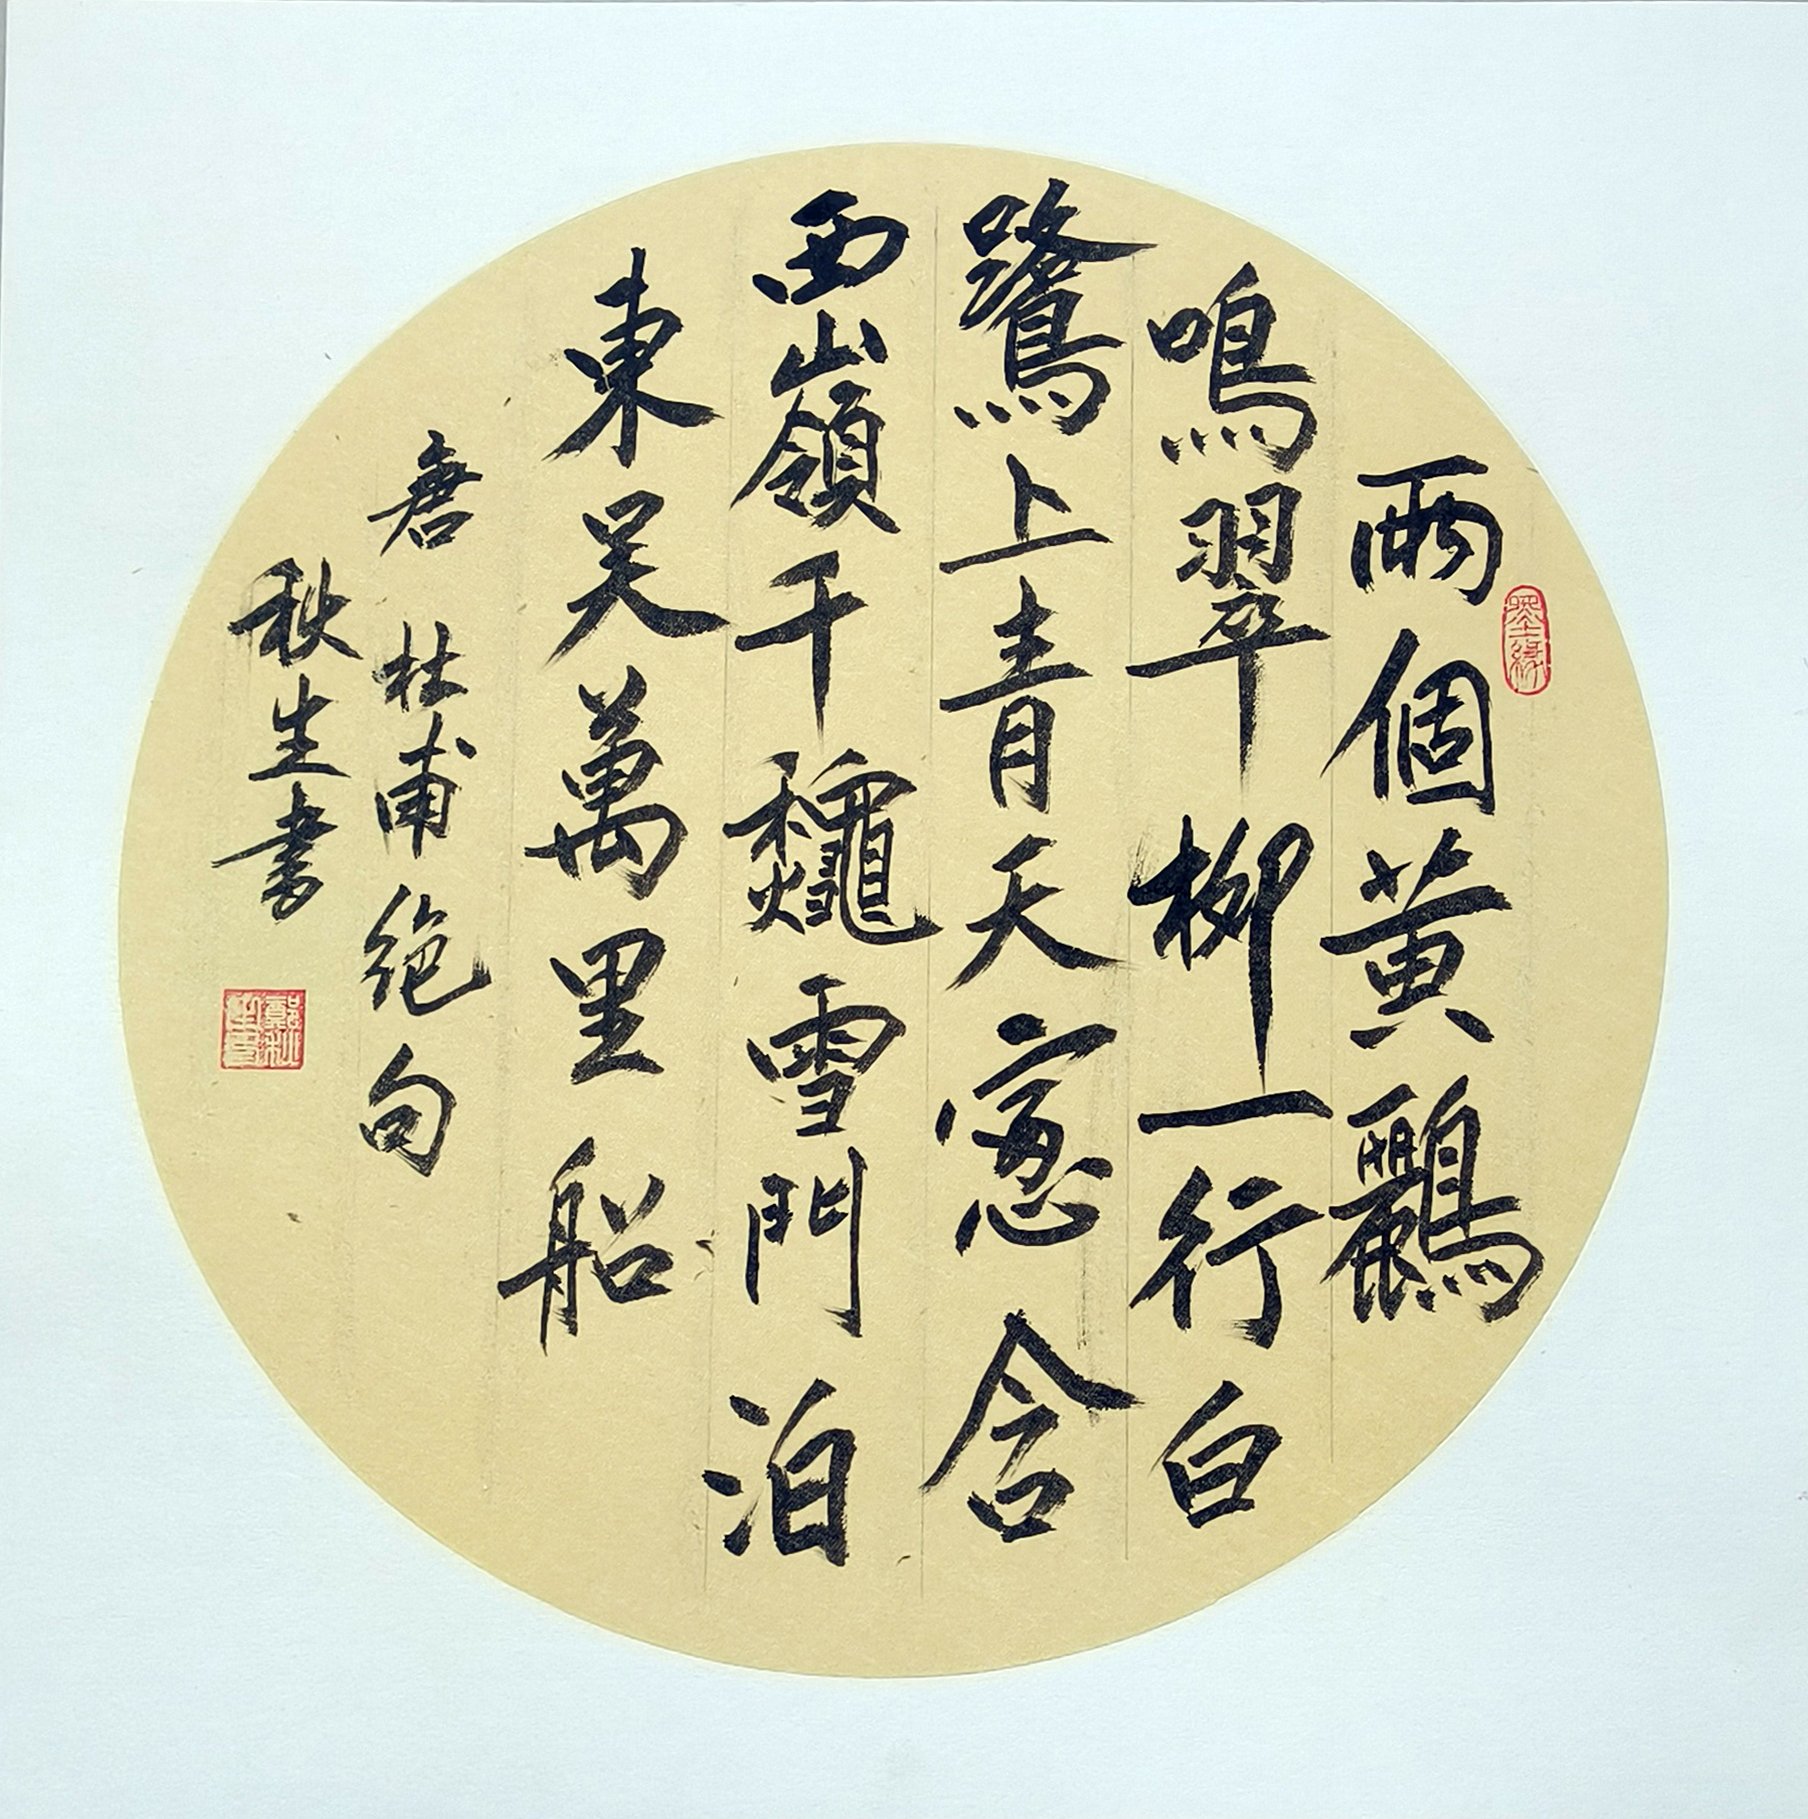 兩個黃鸝
鳴翠柳一行白
鷺上青天窓含
西嶺千龝雪門泊
東吴萬里船
唐杜甫绝句
秋生書
墨緣